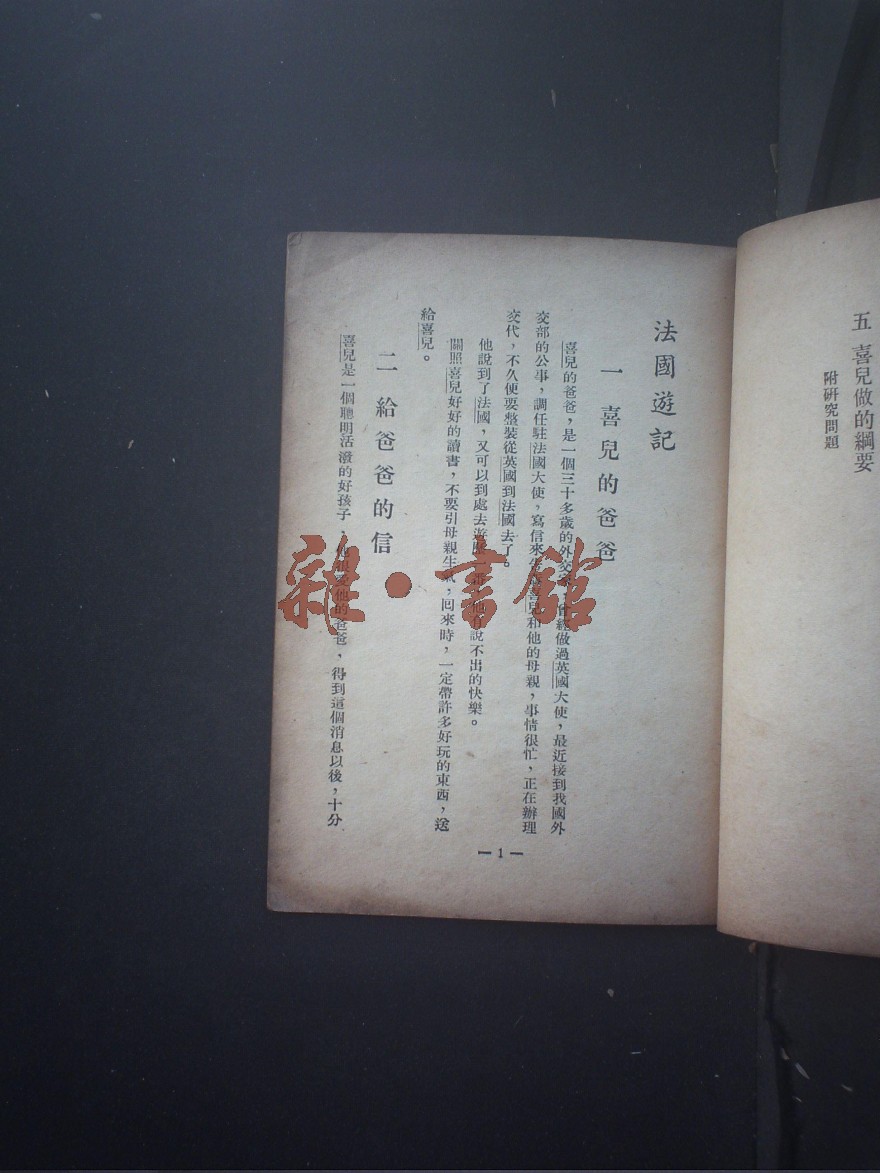 五 喜兒做的綱要
附研究問題
法國遊記
一 喜兒的爸爸
喜兒的爸爸,是一個三十多歲的外交家,曾經做過英國大使,最近接到我國外
交部的公事,調任駐法國大使,寫信來喜兒和他的母親,事情很忙,正在辦理
交代,不久便要整裝從英國到法國去了。
他說到了法國,又可以到處去遊歷一番,他有說不出的快樂。
關照喜兒好好的讀書,不要引母親生氣,回來時,一定帶許多好玩的東西,送
給喜兒。
二 給爸爸的信
喜兒是一個聰明活潑的好孩子,他很愛他的爸爸,得到這個消息以後,十分
— 1 —
雜·書館